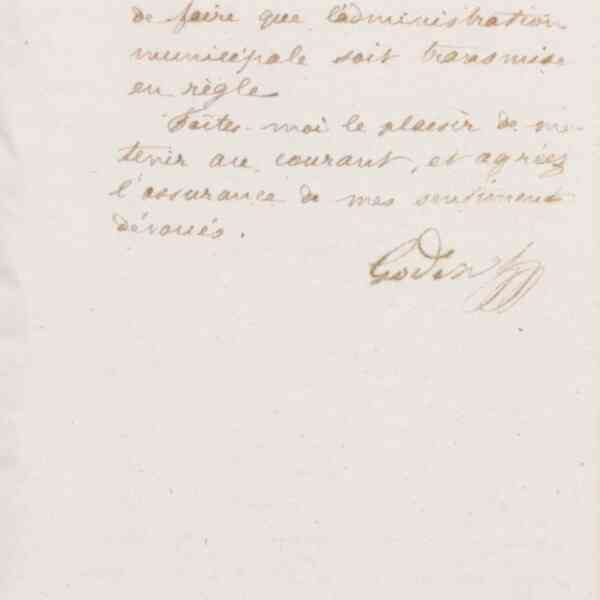 de faire que l'administration
municipale soit transmise
en règle
Faites-moi le plaisir de me
tenir au courant, et agréez
l'assurance de mes sentiments
dévoués.
Godin